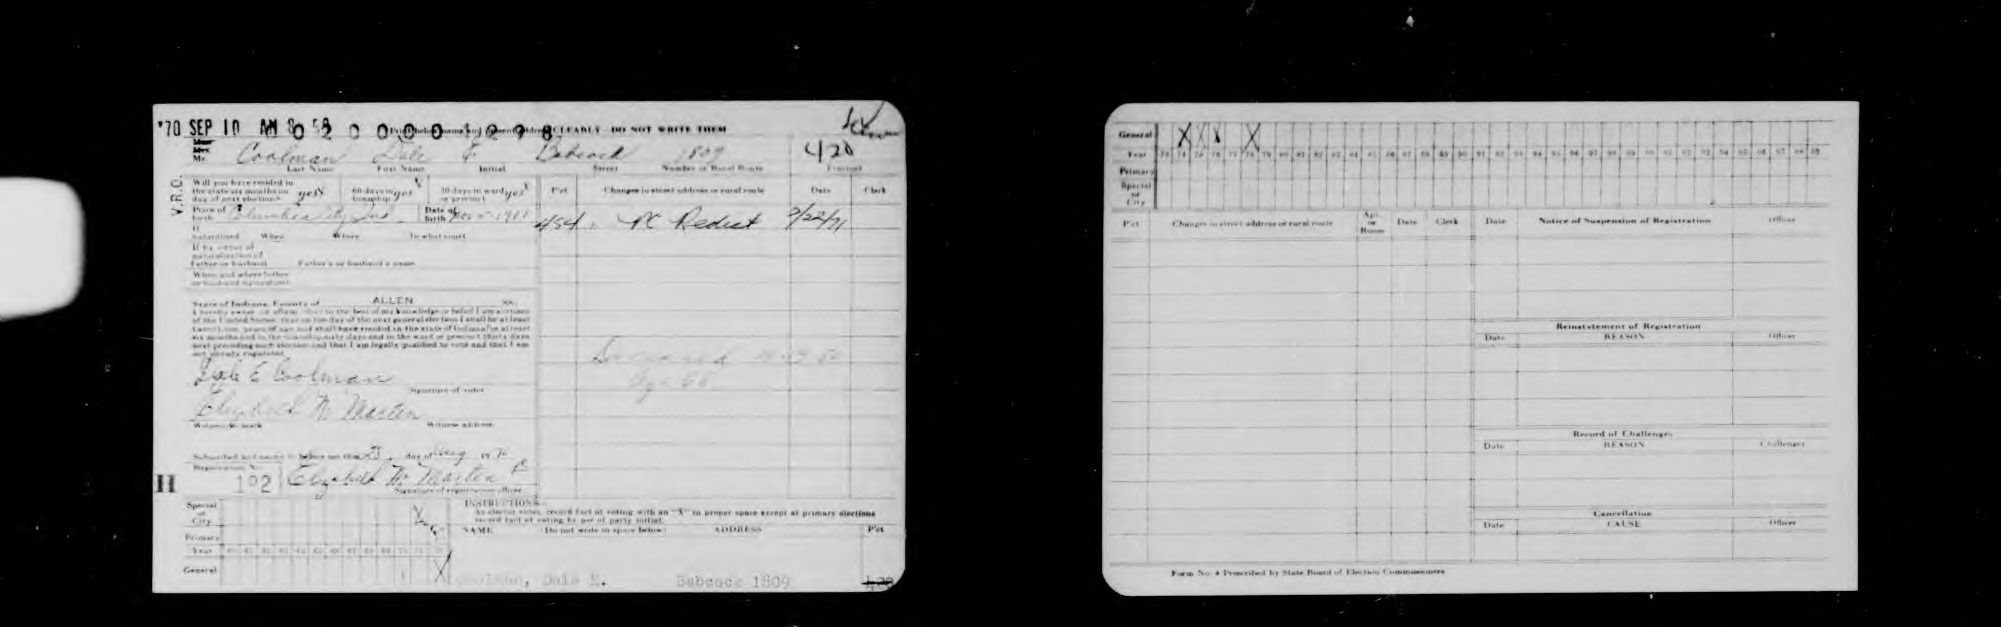 '70 SEP 10 AM 8 58 0 2 0 0 0 0 1 2 9 8 CLEARLY - DO NOT WRITE THEM
Mr. Coolman Dale E Babcock 1809 420
Last Name First Name Initial Street Number or Rural Route Precinct
V.R.O.
Will you have resided in
the state six months on yes 60 days in yes 30 days in ward yes
day of next election? township or precinct
P'ct Changes in street address or rural route Date Clerk
Place of birth Columbia City Ind Date of birth Nov 1911
454 PC Redist 2/22/71
If
naturalized When Where In what court
If by virtue of
naturalization of
Father or husband Father's or husband's name
When and where father
or husband naturalized
State of Indiana, County of ALLEN ss:
I hereby swear or affirm that to the best of my knowledge or belief I am a citizen
of the United States, that on the day of the next general election I shall be at least
twenty-one years of age and shall have resided in the state of Indiana for at least
six months and in the township sixty days and in the ward or precinct thirty days
next preceding such election and that I am legally qualified to vote and that I am
not already registered
Deceased
Age 68
Dale E Coolman
Signature of voter
Elizabeth M Martin
Witness to mark Witness address
Subscribed and sworn to before me this 25 day of Aug 19 70
Registration No.
H 102 Elizabeth M Martin
Signature of registration officer
Special
or
City
Primary
Year
General
INSTRUCTIONS
As elector votes, record fact of voting with an "X" in proper space except at primary elections
record fact of voting by use of party initial.
NAME (Do not write in space below) ADDRESS P'ct
Coolman, Dale E. Babcock 1809 420
General X X X X
Year
Primary
Special
or
City
P'ct Changes in street address or rural route Apt. or Room Date Clerk
Date Notice of Suspension of Registration Officer
Reinstatement of Registration
Date REASON Officer
Record of Challenges
Date REASON Challenger
Cancellation
Date CAUSE Officer
Form No. 4 Prescribed by State Board of Election Commissioners